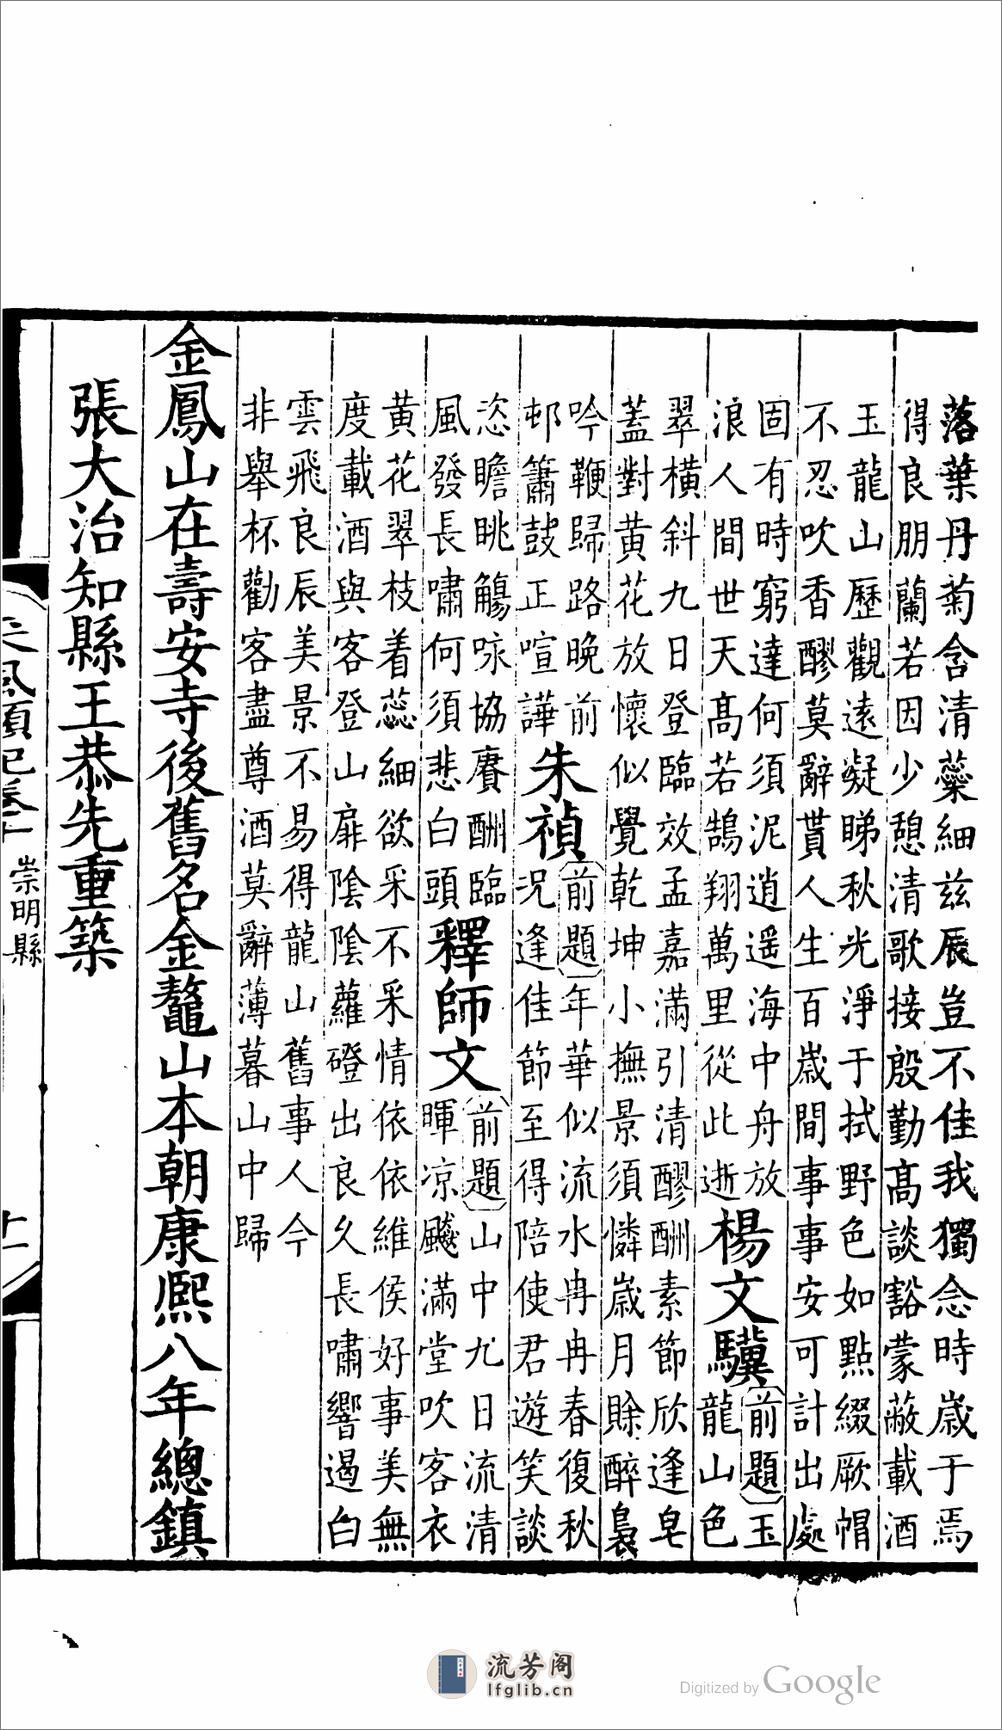 落葉丹菊含清藥細玆辰豈不佳我獨念時歳于焉
得良朋蘭若因少憩清歌接殷勤高談豁蒙蔽載酒
玉龍山歷觀遠凝睇秋光淨于拭野色如點綴厥帽
不忍吹香醪莫辭貰人生百歳間事事安可計出處
固有時窮達何須泥逍遥海中舟放
浪人間世天高若鵠翔萬里從此逝
楊文驥
前題
玉
龍山色
翠横斜九日登臨效孟嘉滿引清醪酬素節欣逢皂
蓋對黄花放懷似覺乾坤小撫景須憐歳月賖醉裊
吟鞭歸路晚前
邨簫鼓正喧譁
朱禎
前題
年華似流水冉冉春復秋
况逢佳節至得陪使君遊笑談
恣瞻眺觴咏協賡酬臨
風發長嘯何須悲白頭
釋師文
前題
山中九日流清
暉凉飈滿堂吹客衣
黄花翠枝着蕊細欲采不采情依依維侯好事美無
度載酒與客登山扉陰陰蘿磴出良久長嘯響遏白
雲飛良辰美景不易得龍山舊事人今
非舉杯勸客盡尊酒莫辭薄暮山中歸
金鳳山在壽安寺後舊名金鼇山本朝康熙八年總鎮
張大治知縣王恭先重築
崇明縣
十一
流芳阁
lfglib.cn
Digitized by Google